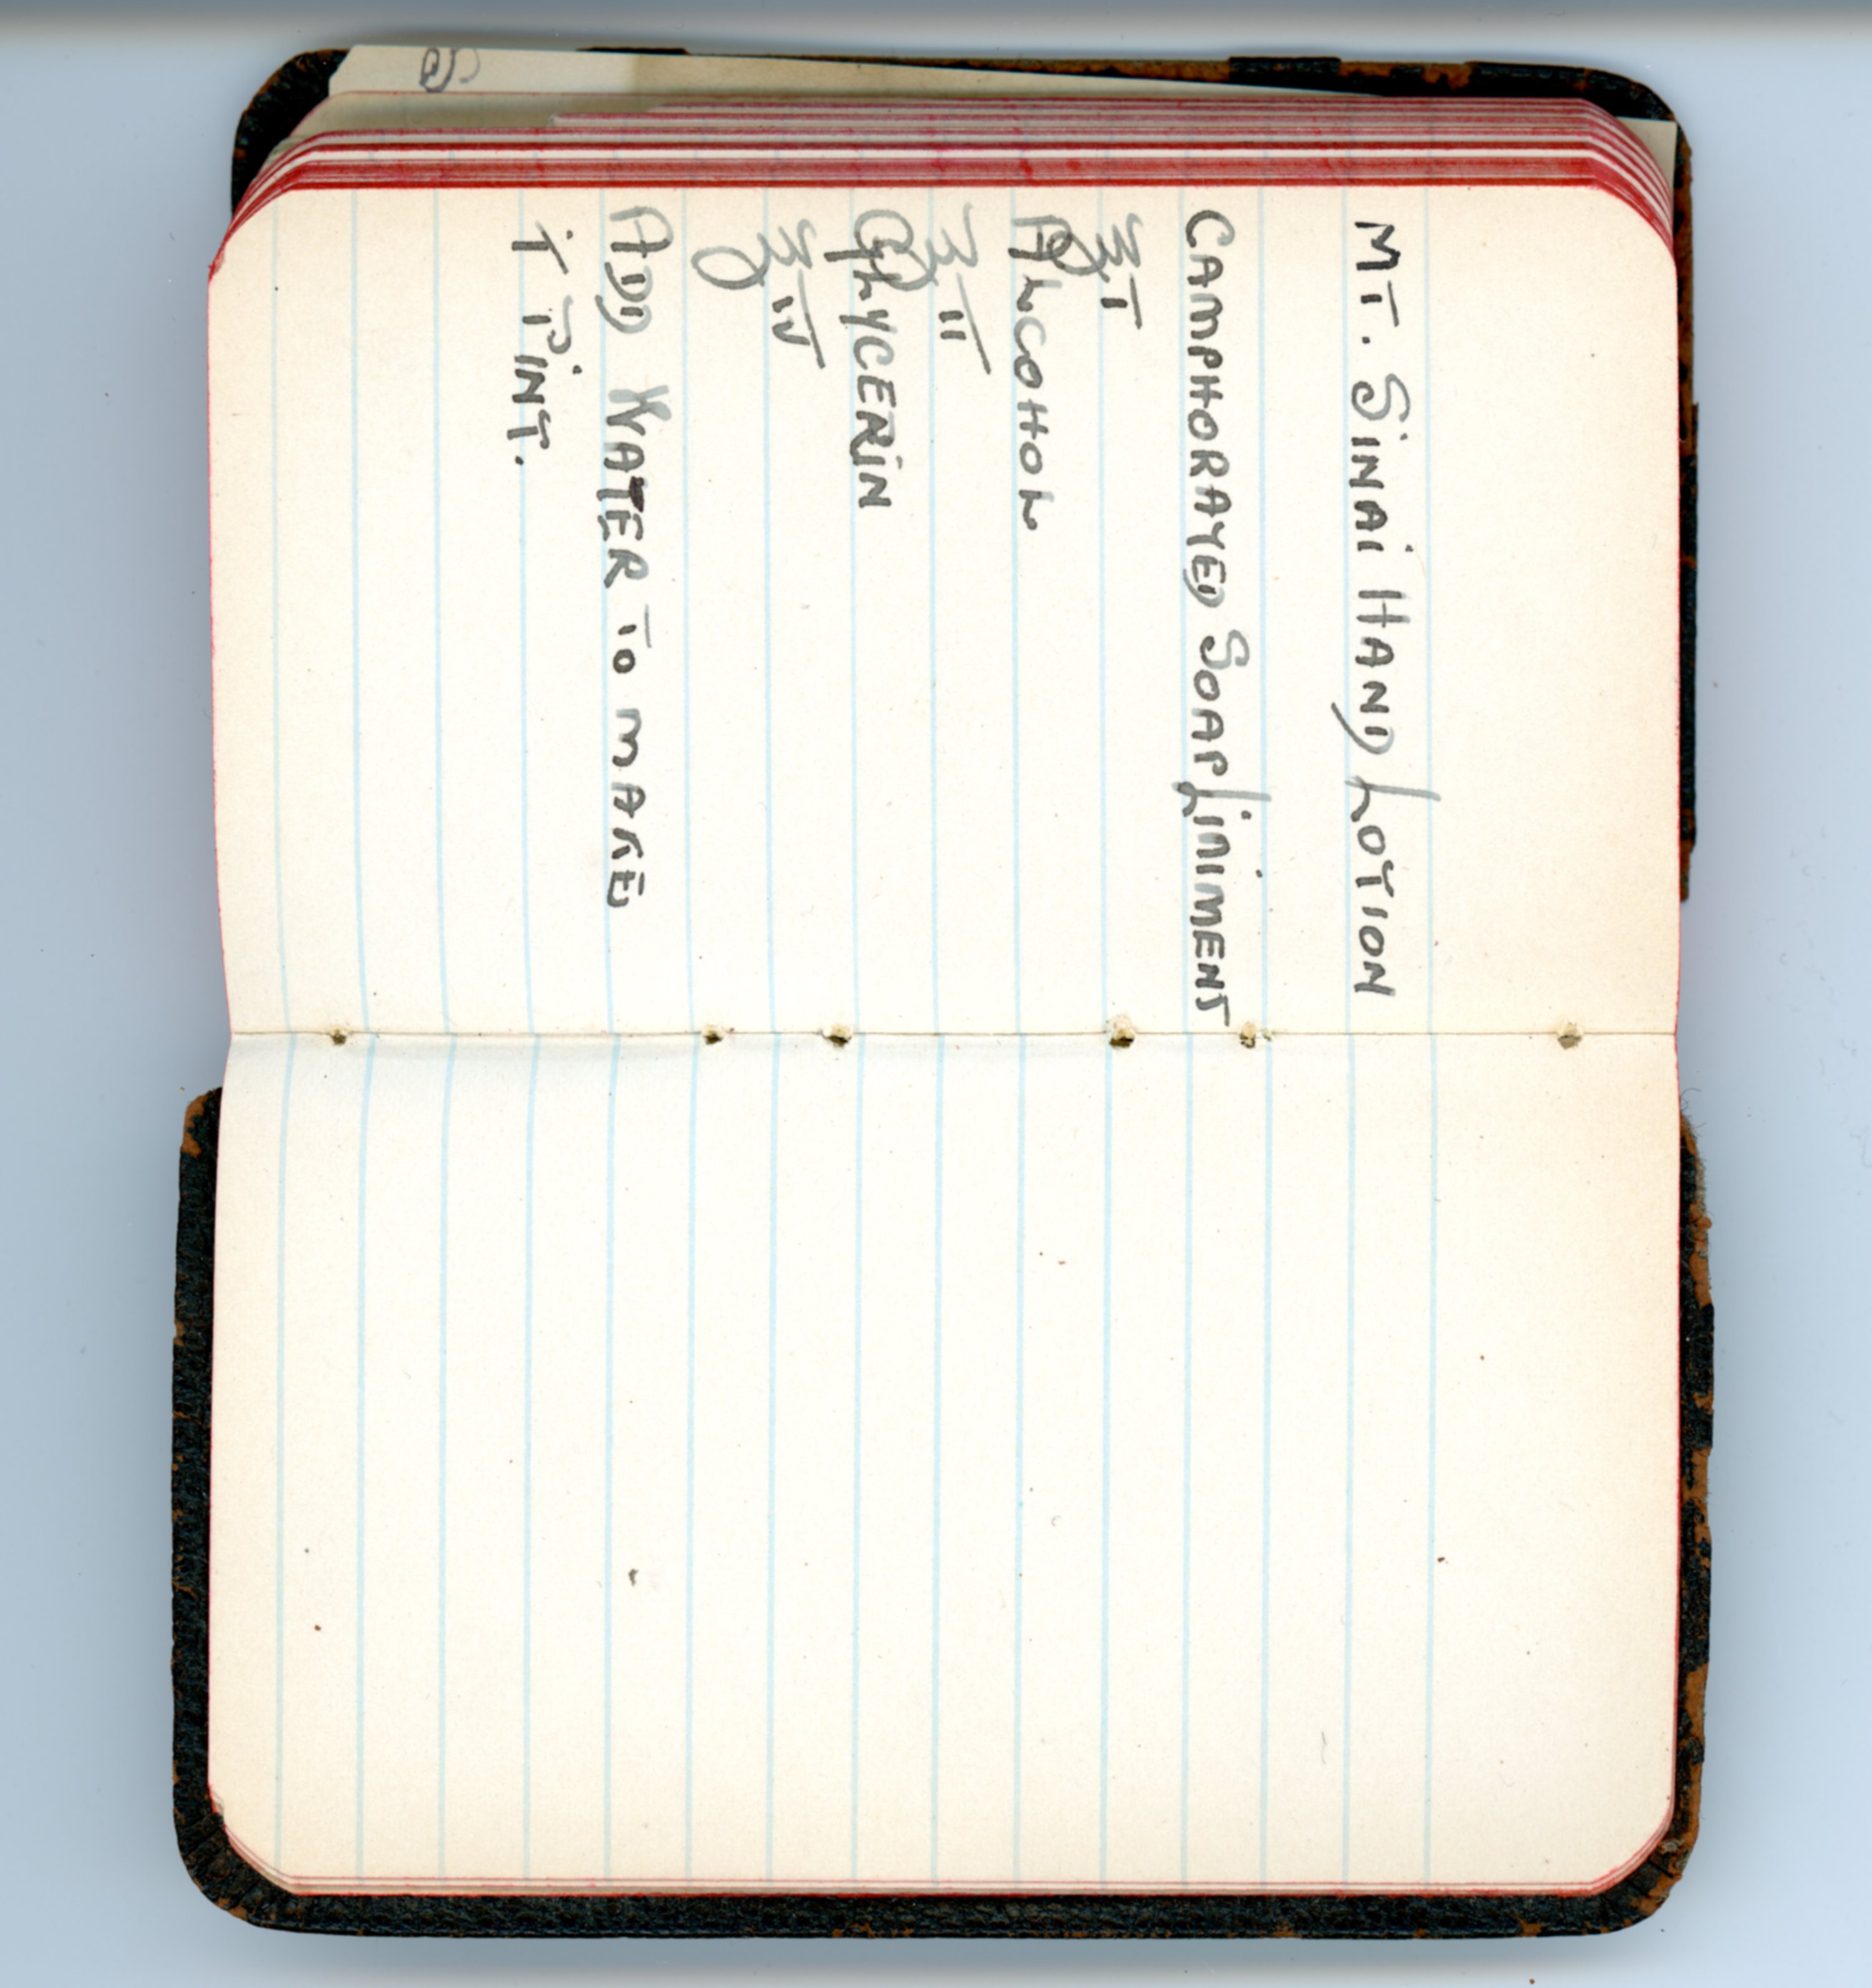 MT. SINAI HAND LOTION
CAMPHORAYED SOAP LINIMENT
℥ I
ALCOHOL
℥ II
GLYCERIN
℥ IV
ADD WATER TO MAKE
I PINT.